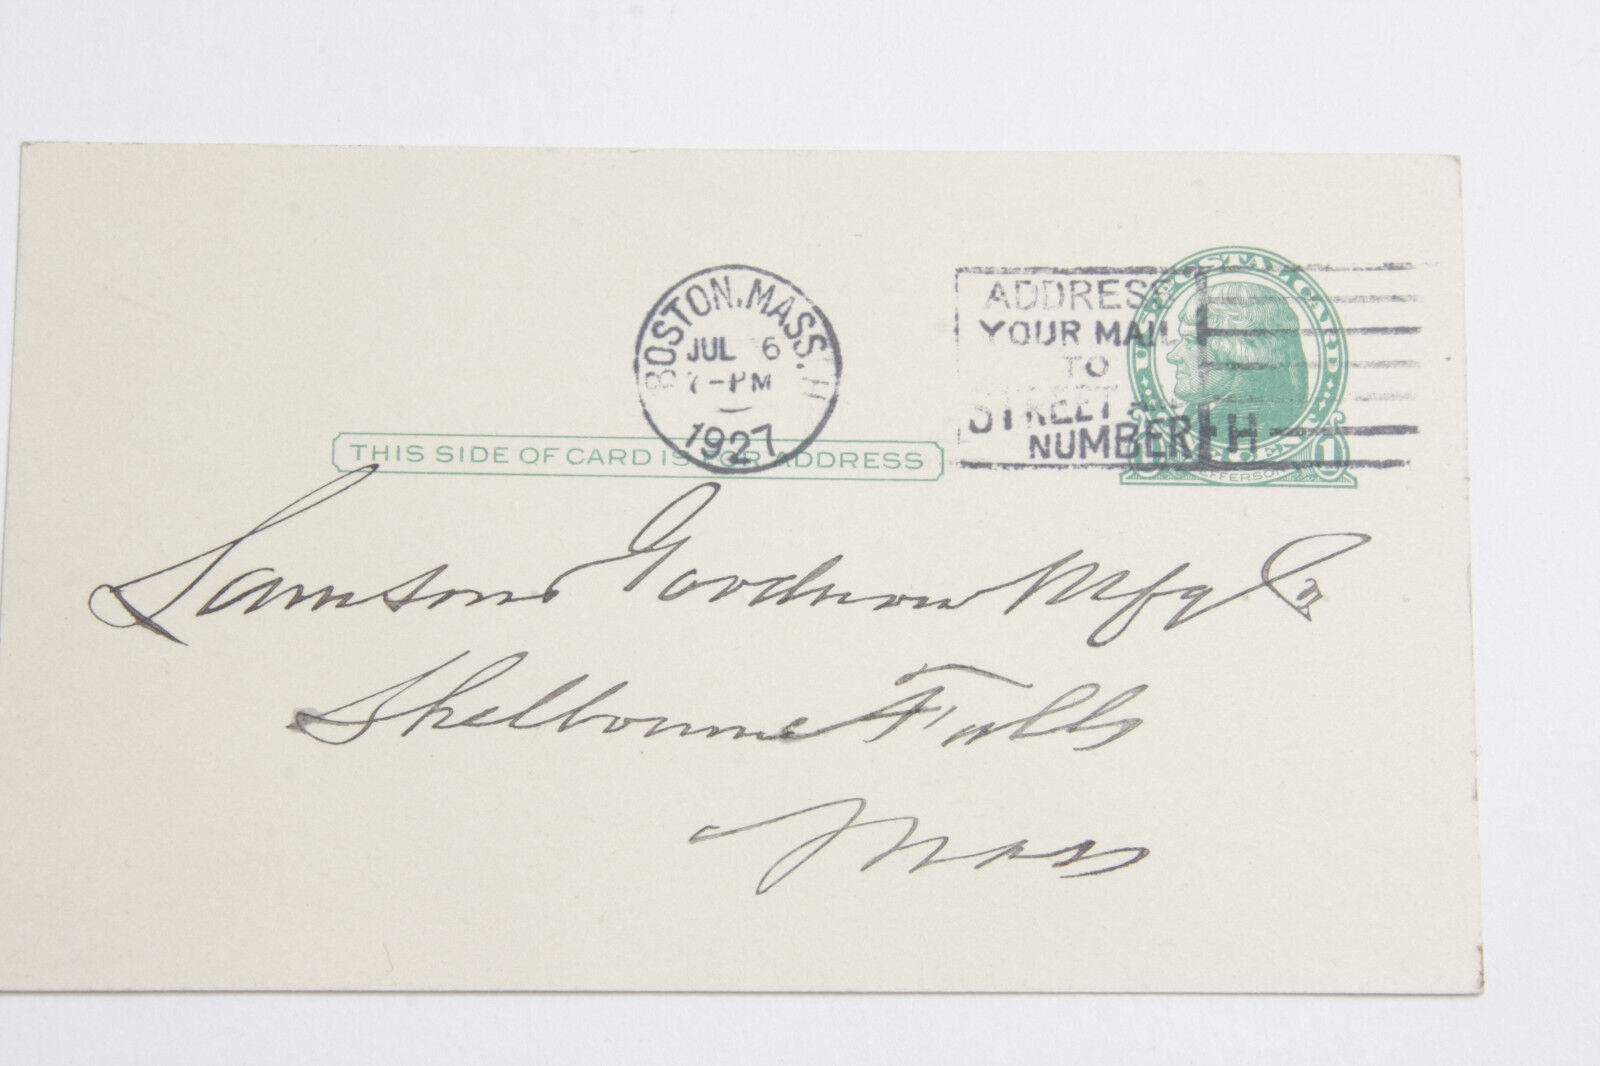 BOSTON, MASS. H
JUL 6
7-PM
1927
ADDRESS
YOUR MAIL
TO
STREET
NUMBER
H
U.S. POSTAL CARD
1 CENT 1
JEFFERSON
THIS SIDE OF CARD IS FOR ADDRESS
Lamson Goodnow Mfg Co
Shelburne Falls
Mass